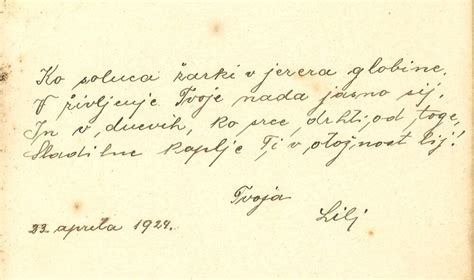 Ko solnca žarki v jezera globine.
V življenje Tvoje nada jasno sij.
In v dnevih, ko srce drhti od toge,
Hladilne kaplje Ti v otožnost lij!
Tvoja
23. aprila 1924. Lilj